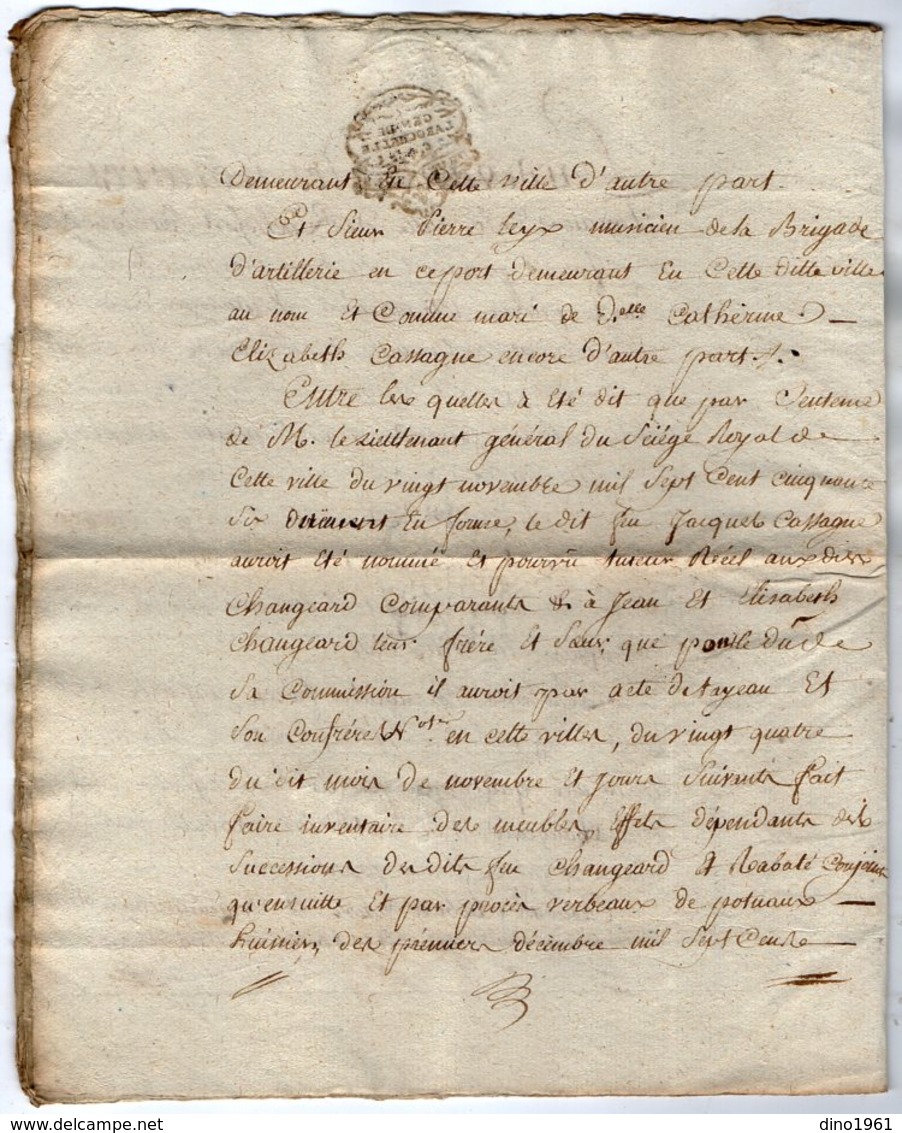 GEN. DE
LAROCHELLE
Demeurant En Cette ville d'autre part.
Et Sieur Pierre Leyx musicien de la Brigade
d'artillerie en ce port demeurant En Cette ditte ville
au nom Et Comme mari de d.elle Catherine
Elizabeth Cassagne encore d'autre part.
Entre les quelles à Eté dit que par Sentence
de M. le Lieutenant général du Siége Royal de
Cette ville du vingt novembre mil Sept Cent cinquante
Six duëment En forme, le dit feu Jacques Cassagne
auroit Eté nommé Et pourvû tuteur Réel aux dits
Changeard Comparants & à Jean Et Elisabeth
Changeard leur frére Et Sœur, que pour le du de
Sa Commission il auroit par acte de Et
Son Confrére Nots. en cette ville, du vingt quatre
du dit mois de novembre Et jours Suivants fait
faire inventaire des meubles Effets dépendants des
Successions des dits feu Changeard & Rabaté Conjoints
qu'ensuitte Et par procès verbeaux de
huissier, des premier décembre mil Sept Cents
dino1961
delcampe.net